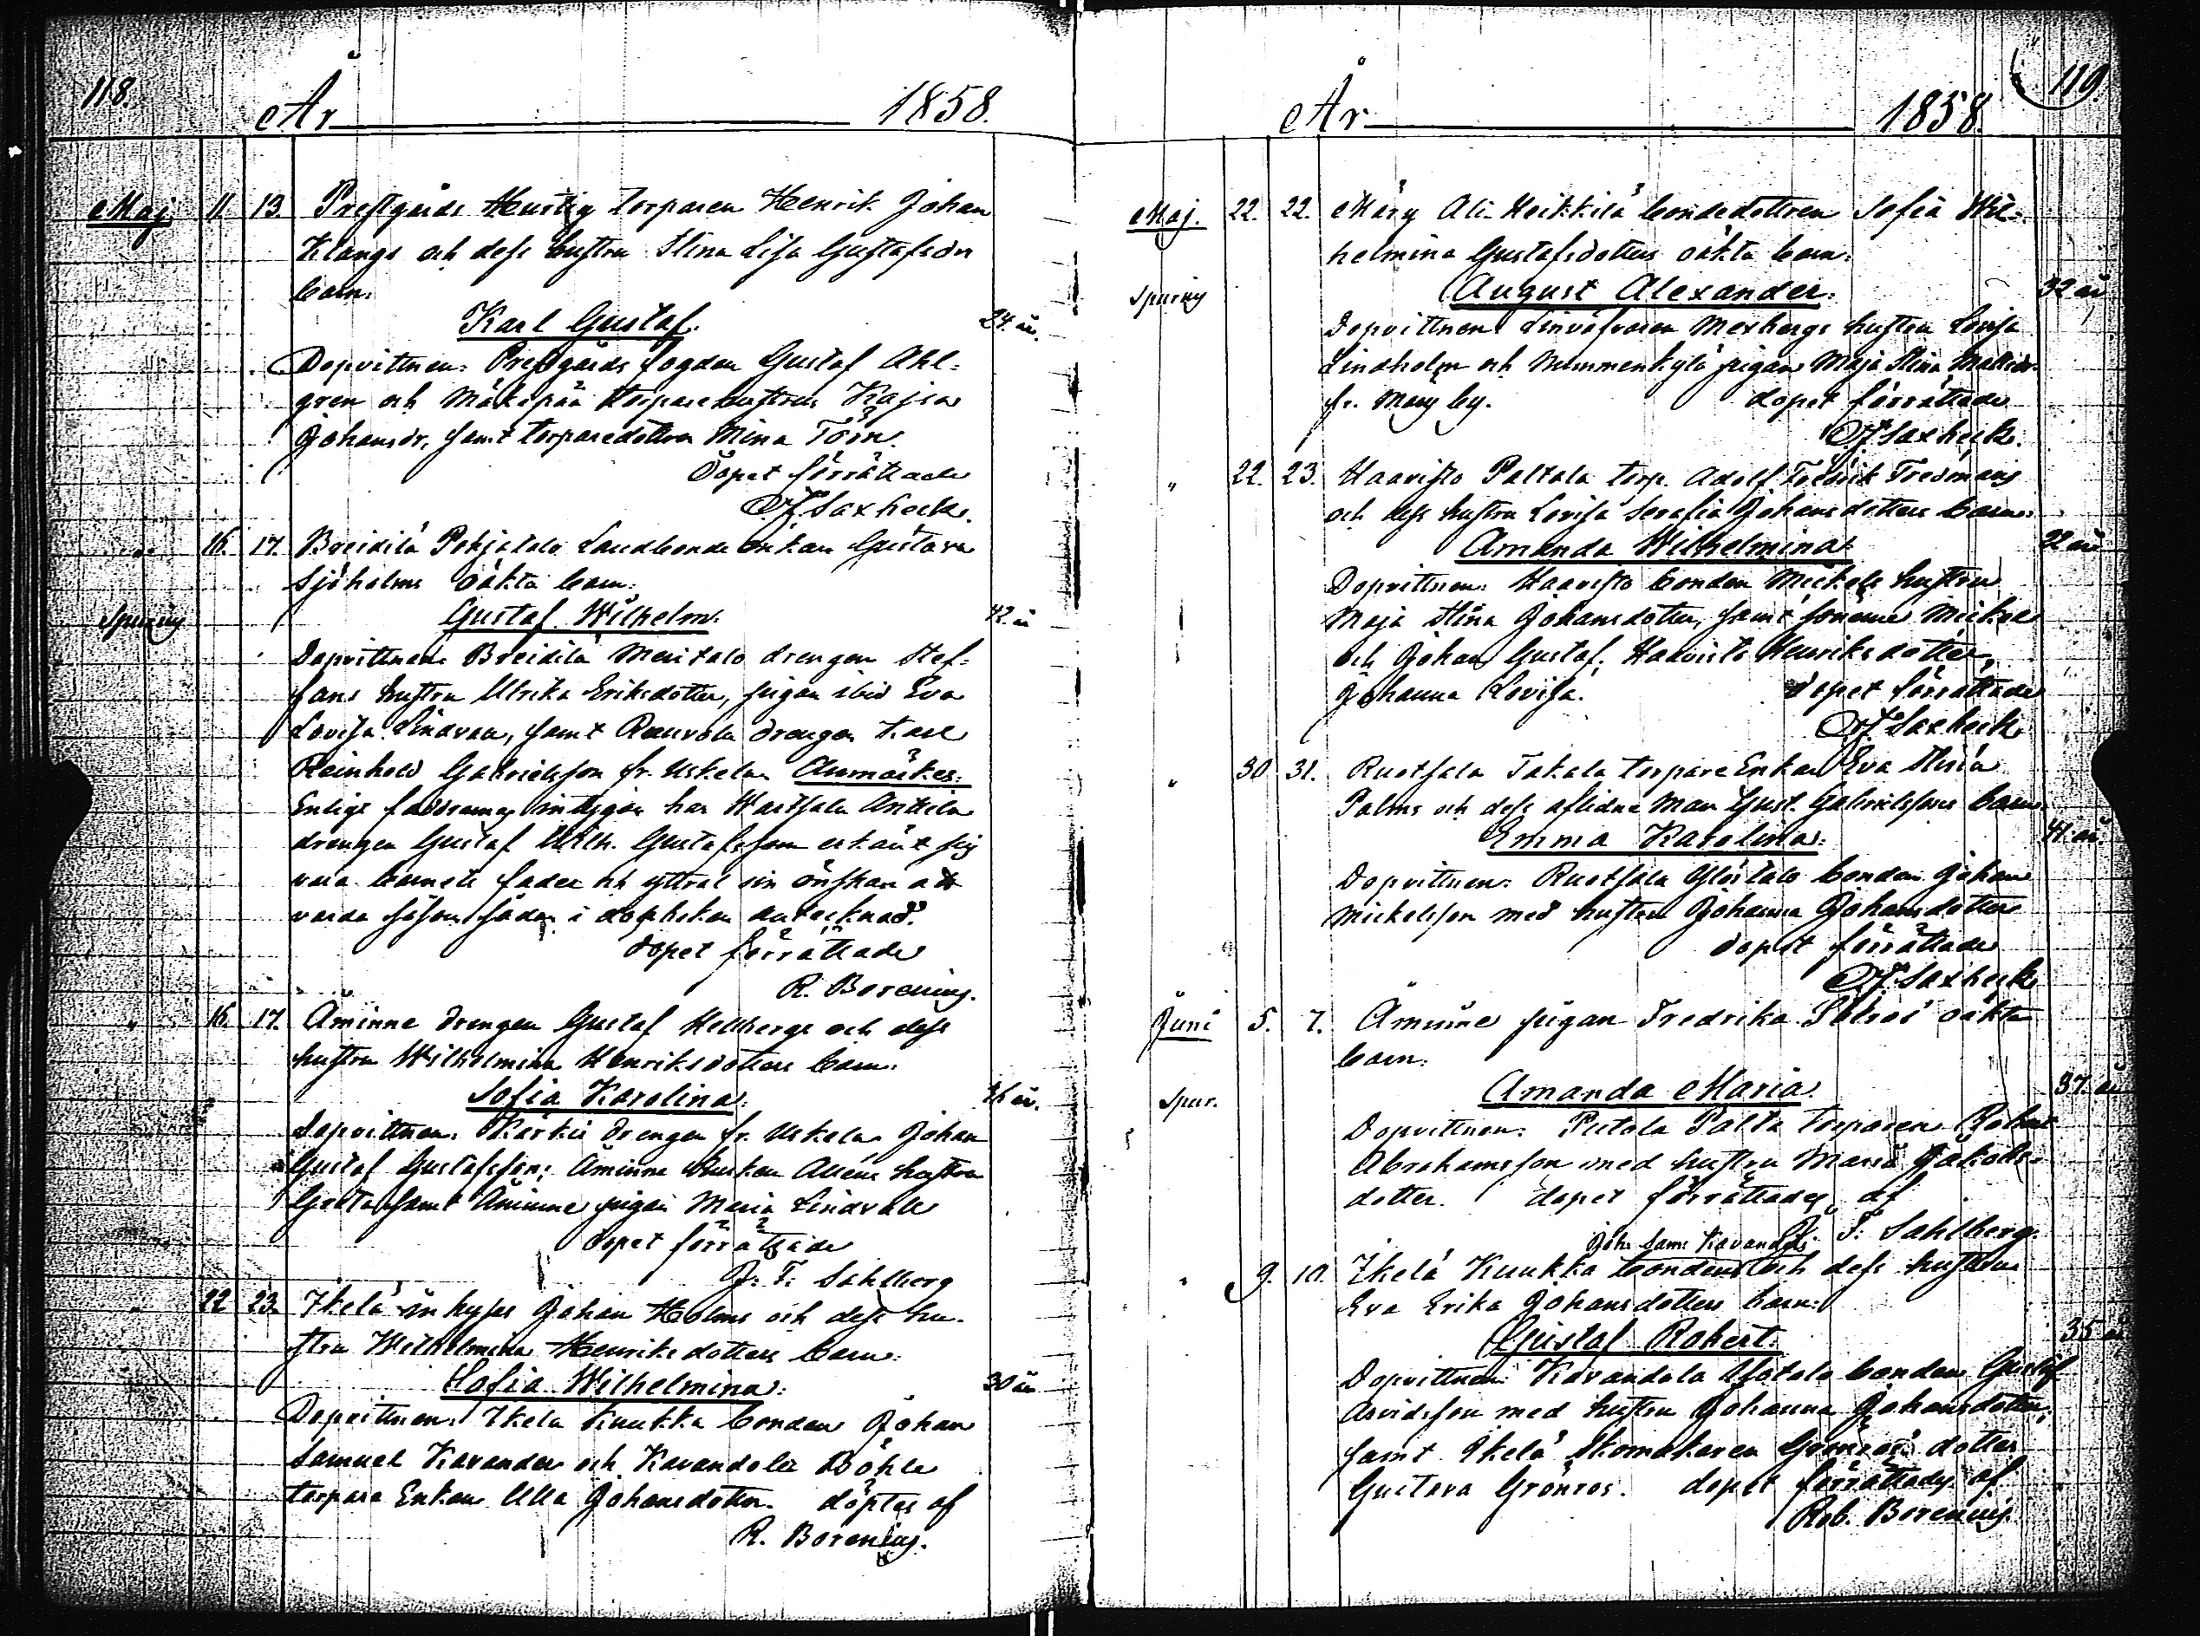 118.
År 1858.
Maj 11. 13. Prestgårds Hurtig torparen Henrik Johan
Klangs och dess hustru Stina Lisa Gustafsdrs
barn:
Karl Gustaf. 24 år.
Dopvittnen: Prestgårds fogden Gustaf Ahl-
gren och Mäkipää torparehustrun Kajsa
Johansdr, samt torparedottren Mina Törn.
Dopet förrättade
Saxbeck.
" 16. 17. Breidilä Pohjatalo Landbonde enkan Gustava
Sjöholms oäkta barn:
Spuring Gustaf Wilhelm. 42 år
Dopvittnen: Breidilä Meritalo drengen Stef-
fans hustru Ulrika Eriksdotter, pigan ibid Eva
Lovisa Lindvall, samt Rauvola drengen Karl
Reinhold Gabrielsson fr. Uskela. Anmärkes:
Enligt faddrarnas intygan har Wartsala Anttila
drengen Gustaf Wilh. Gustafsson erkänt sig
vara barnets fader och yttrat sin önskan att
varda såsom sådan i dopboken antecknad.
dopet förrättade
R. Borenius.
" 16. 17. Åminne drengen Gustaf Hellbergs och dess
hustru Wilhelmina Henriksdotters barn:
Sofia Karolina. 26 år.
Dopvittnen: Kärkis drengen fr. Uskela Johan
Gustaf Gustafsson; Åminne Kusken Aléns hustru
Greta, samt Åminne pigan Maria Lindvall
dopet förrättade
J. F. Sahlberg
" 22 23. Ikelä inhyses Johan Holms och dess hu-
stru Wilhelmina Henriksdotters barn:
Sofia Wilhelmina. 30 år
Dopvittnen: Ikela Kuukka bonden Johan
Samuel Kavander och Kavandola Böhle
torpare Enkan Ulla Johansdotter. döptes af
R. Borenius.
119.
År 1858.
Maj. 22. 22. Märy Ali-Heikkilä bondedottren Sofia Wil-
helmina Gustafsdotters oäkta barn:
Spuring August Alexander. 32 år
Dopvittnen: Linväfvaren Mexbergs hustru Lovisa
Lindholm och Nummenkylä pigan Maja Stina Mattsdr
fr. Märy by. dopet förrättade
Saxbeck.
" 22. 23. Haavisto Paltala torp. Adolf Fredrik Fredmans
och dess hustru Lovisa Serafia Johansdotters barn:
Amanda Wilhelmina. 22 år
Dopvittnen: Haavisto bonden Mickels hustru
Maja Stina Johansdotter, samt sönerne Mickel
och Johan Gustaf. Haavisto Henriksdotter,
Johanna Lovisa. dopet förrättade
Saxbeck
" 30 31. Ruotsala Takala torpare Enkan Eva Stina
Palms och dess aflidna man Gust. Gabrielssons barn
Emma Karolina. 41 år.
Dopvittnen: Ruotsala Ylöstalo bonden Johan
Mickelsson med hustru Johanna Johansdotter
dopet förrättade
Saxbeck
Juni 5. 7. Åminne pigan Fredrika oäkta
barn:
Spur. Amanda Maria. 37. år
Dopvittnen: Pietola Palta torparen Robert
Abrahamsson med hustru Maria Jakobs-
dotter. dopet förrättades af
J. F. Sahlberg.
Joh. Sam. Kavanders
" 9. 10. Ikelä Kuukka bonden och dess hustrus
Eva Erika Johansdotters barn:
Gustaf Robert. 35 år
Dopvittnen: Kavandola Alotalo bonden Gustaf
Arvidsson med hustru Johanna Johansdotter,
samt Ikelä Skomakaren Grönros' dotter
Gustava Grönros. dopet förrättades af
Rob. Borenius.